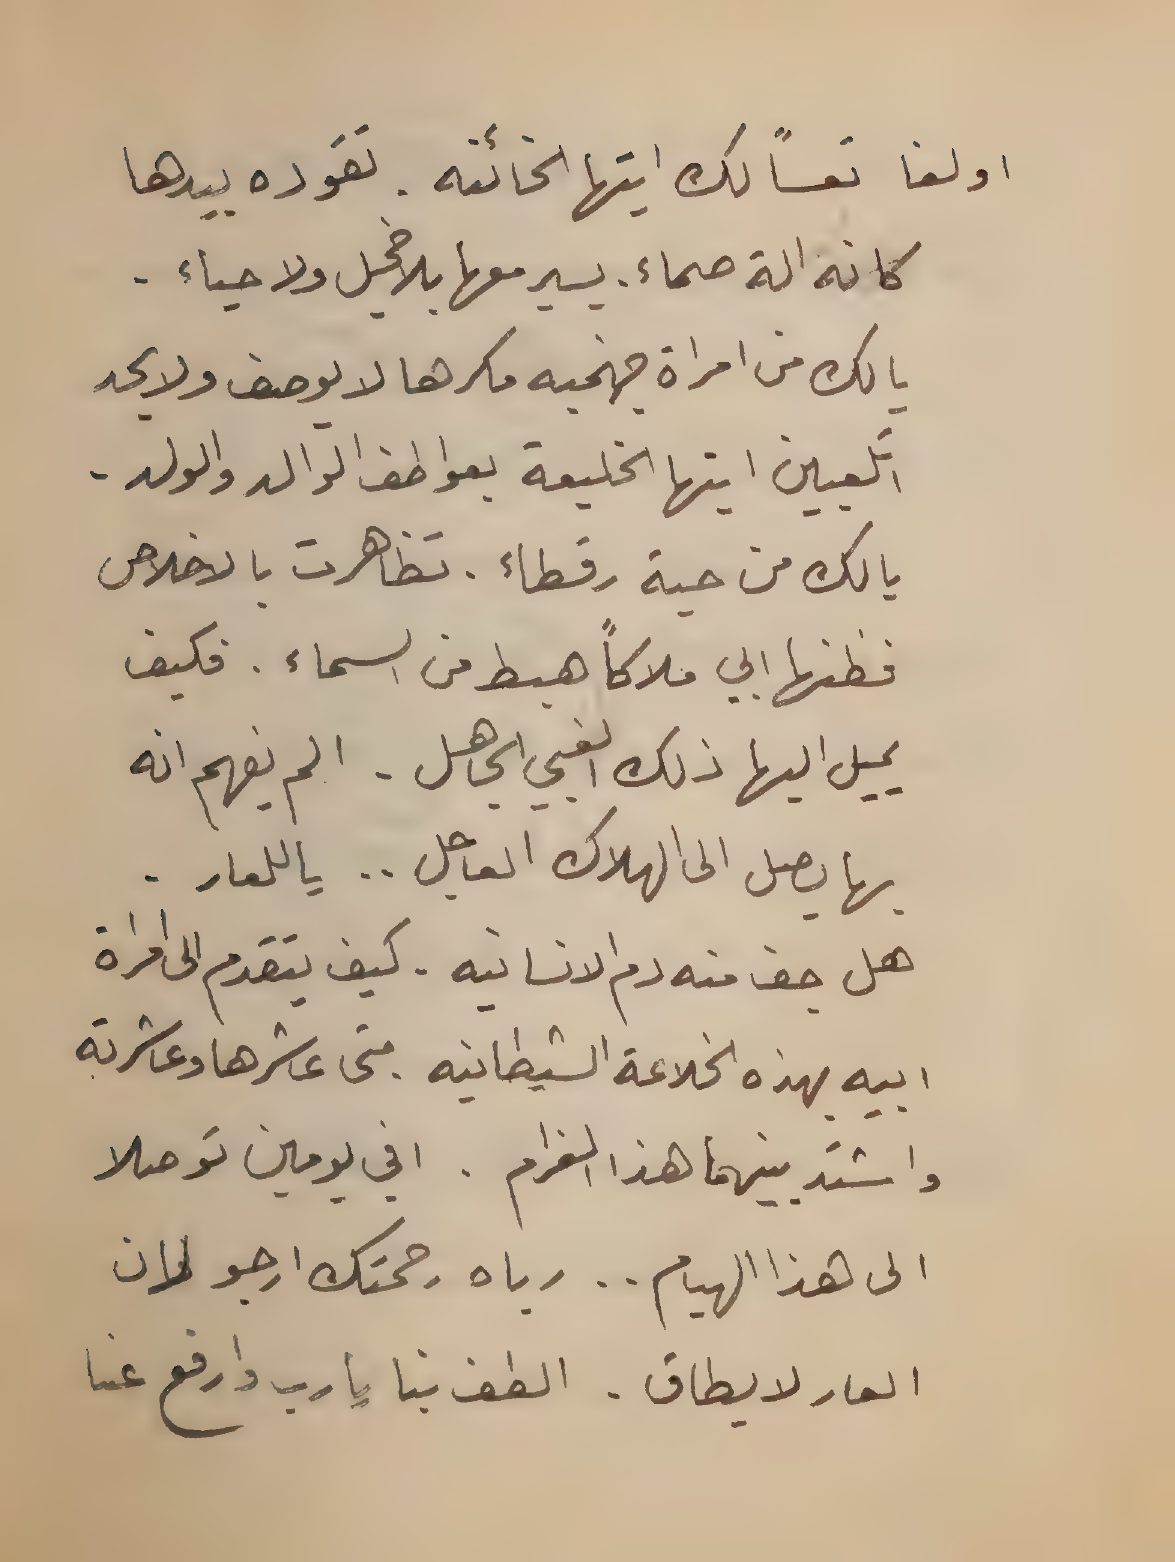 اولغا تعساً لك ايتها الخائنه . تقوده بيدها
كانه الة صماء . يسير معها بلا خجل ولا حياء .
يالك من امراة جهنميه مكرها لا يوصف ولا يحد
اتلعبين ايتها الخليعة بعواطف الوالد والولد .
يالك من حية رقطاء . تظاهرت بالاخلاص
فظنها ابي ملاكاً هبط من السماء . فكيف
يميل اليها ذلك الغبي الجاهل . الم يفهم انه
بها يصل الى الهلاك العاجل .. ياللعار .
هل جف منه دم الانسانيه . كيف يتقدم الى امراة
ابيه بهذه الخلاعة الشيطانيه . متى عاشرها وعاشرته
واشتد بينهما هذا الغرام . افي يومين توصلا
الى هذا الهيام .. رباه رحمتك ارجو لان
العار لا يطاق . الطف بنا يارب وارفع عنا